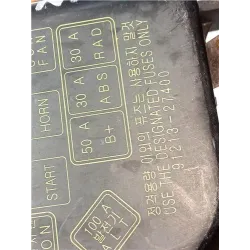 START HORN FAN
50 A 30 A 30 A
B+ ABS RAD
100 A
정격용량 이외의 퓨즈는 사용하지 말것
USE THE DESIGNATED FUSES ONLY
91213-27400